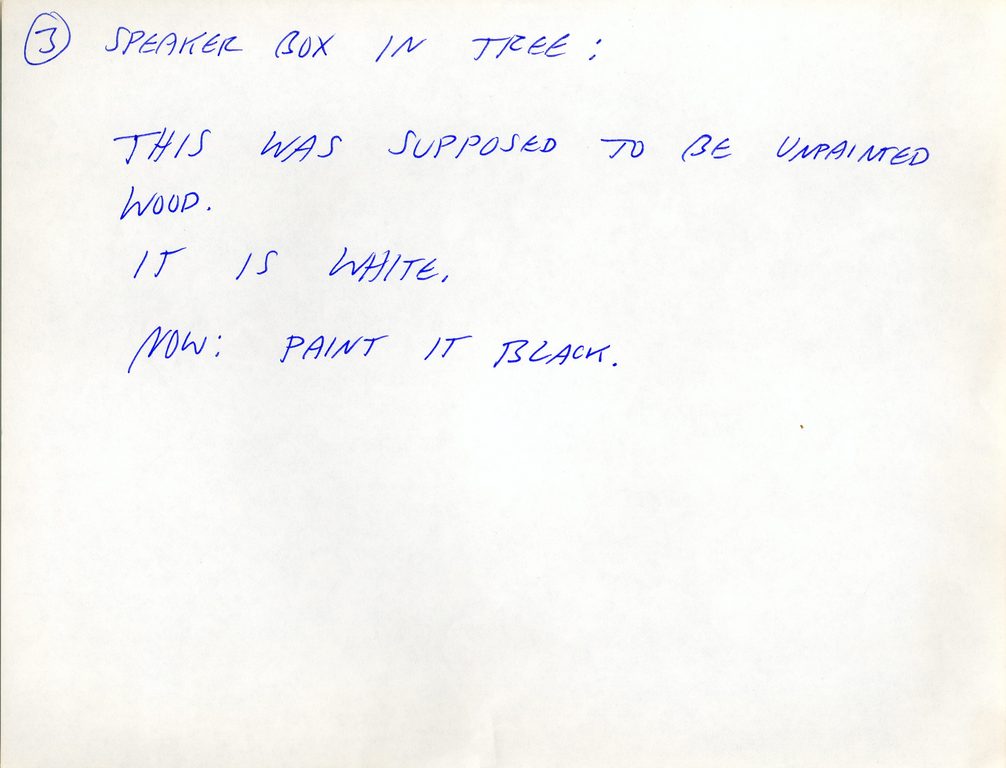 3 SPEAKER BOX IN TREE:
THIS WAS SUPPOSED TO BE UNPAINTED
WOOD.
IT IS WHITE.
NOW: PAINT IT BLACK.